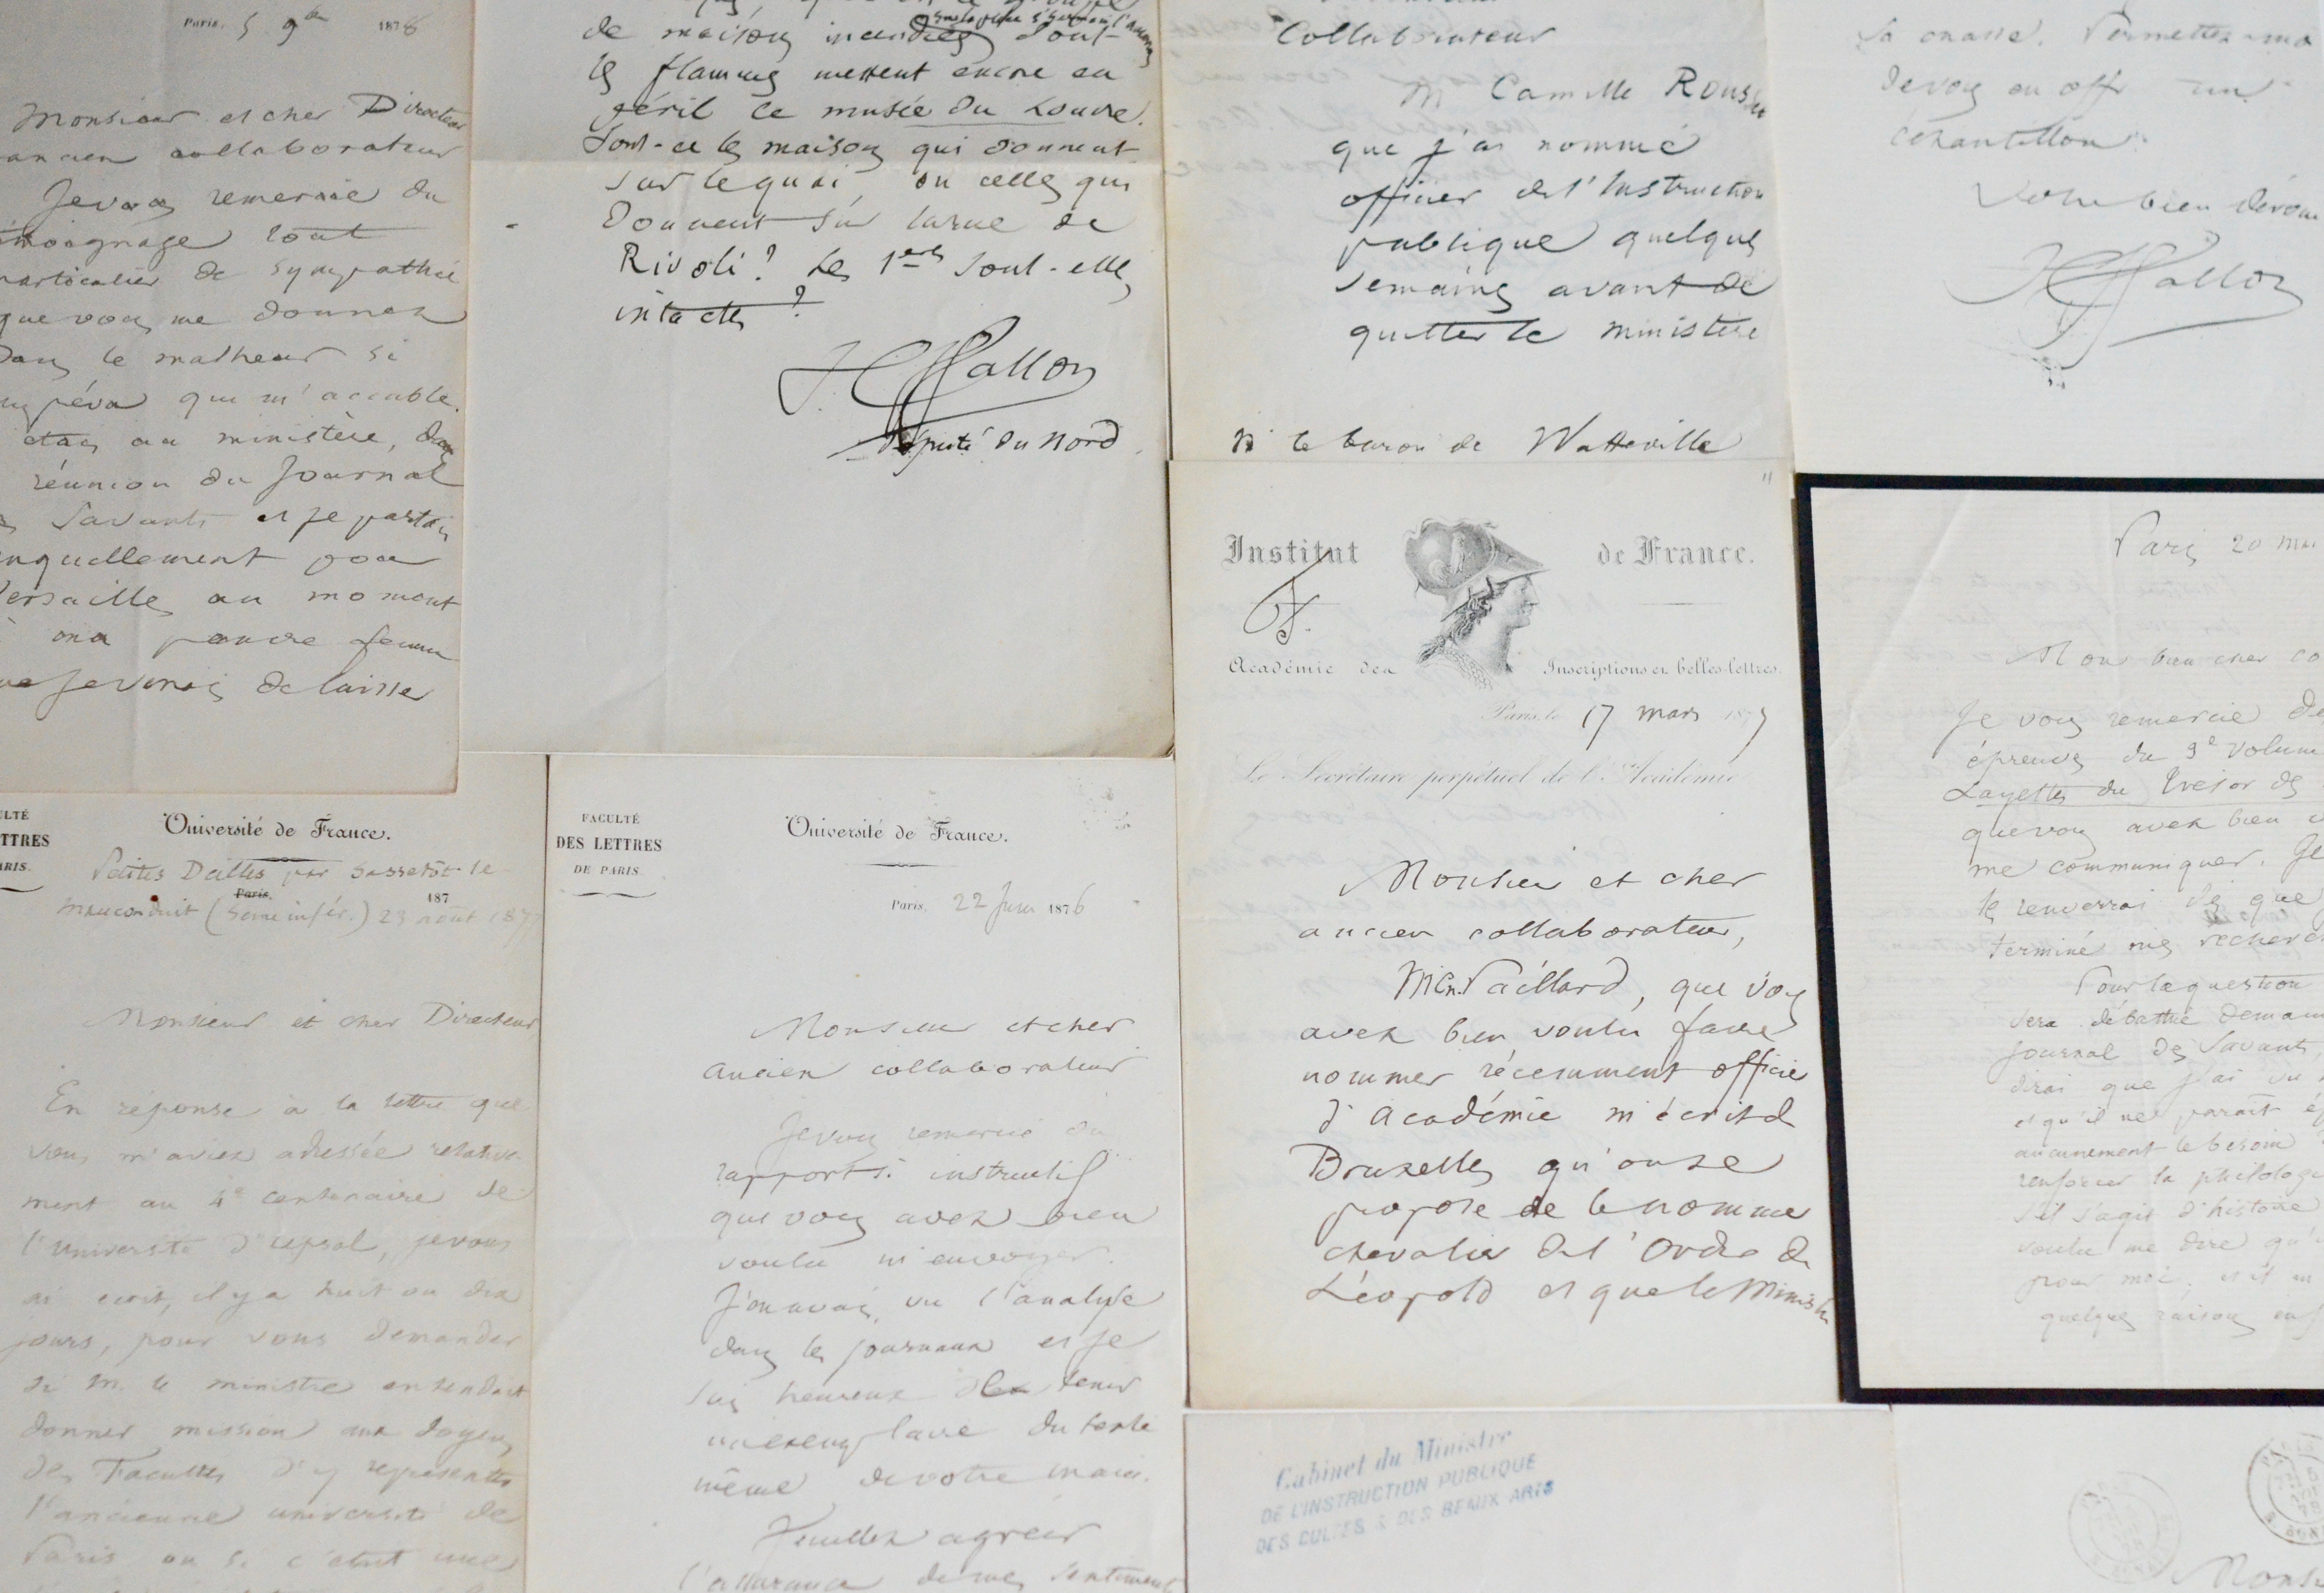 Paris, 5 9bre 1878
Monsieur et cher Directeur
ancien collaborateur
Je vous remercie du
témoignage tout
particulier de sympathie
que vous me donnez
Dans le malheur si
qui m'accable.
étais au ministère, dans
réunion du Journal
Savants et je partais
pour
Versailles au moment
ma pauvre femme
je venais de laisser
de maisons incendiées dont
les flammes mettent encore en
péril le musée du Louvre.
Sont-ce les maisons qui donnent
sur le quai ou celles qui
Donnent sur la rue de
Rivoli ? Les 1eres sont-elles
intactes ?
H Wallon
Député du Nord
Collaborateur
Mr Camille Rousset
que j'ai nommé
officier de l'Instruction
publique quelques
semaines avant de
quitter le ministère
M le baron de Watteville
la chasse. Permettez-moi
de vous en offr un
échantillon.
Votre bien dévoué
H Wallon
FACULTÉ
DES LETTRES
DE PARIS.
Université de France.
Petites Dalles par Sassetot-le
Paris, 187
Mauconduit (Seine infér.) 23 août 187
Monsieur et cher Directeur
En réponse à la lettre que
vous m'aviez adressée relative-
ment au 4e centenaire de
l'université d'Upsal, je vous
ai écrit, il y a huit ou dix
jours, pour vous demander
si M. le ministre entendait
donner mission aux doyens
des Facultés d'y représenter
l'ancienne université de
Paris ou si c'était une
FACULTÉ
DES LETTRES
DE PARIS.
Université de France.
Paris, 22 Juin 1876
Monsieur et cher
ancien collaborateur
Je vous remercie du
rapport si instructif
que vous avez bien
voulu m'envoyer.
J'en avais vu l'analyse
dans les journaux et je
suis heureux d'en tenir
un exemplaire du texte
même de votre main.
Veuillez agréer
l'assurance de mes sentiments
11
Institut de France.
Académie des Inscriptions et belles-lettres.
Paris, le 17 mars 187
Le Secrétaire perpétuel de l'Académie
Monsieur et cher
ancien collaborateur,
Paillard, que vous
avez bien voulu faire
nommer récemment officier
d'Académie m'écrit de
Bruxelles qu'on se
propose de le nommer
chevalier de l'Ordre de
Léopold et que le Ministre
Paris 20
Mon bien cher co
Je vous remercie de
épreuves du 3e volume
Layettes du Trésor des
que vous avez bien
me communiquer. Je
les renverrai dès que
terminé mes recherch
Pour la question
sera débattue demain
Journal des Savants
dirai que j'ai vu
et qu'il ne paraît
aucunement le besoin
renforcer la philologie
s'il s'agit d'histoire
voulu me dire qu'
pour moi, et il
quelques raisons
Cabinet du Ministre
DE L'INSTRUCTION PUBLIQUE
DES CULTES & DES BEAUX ARTS
Mons